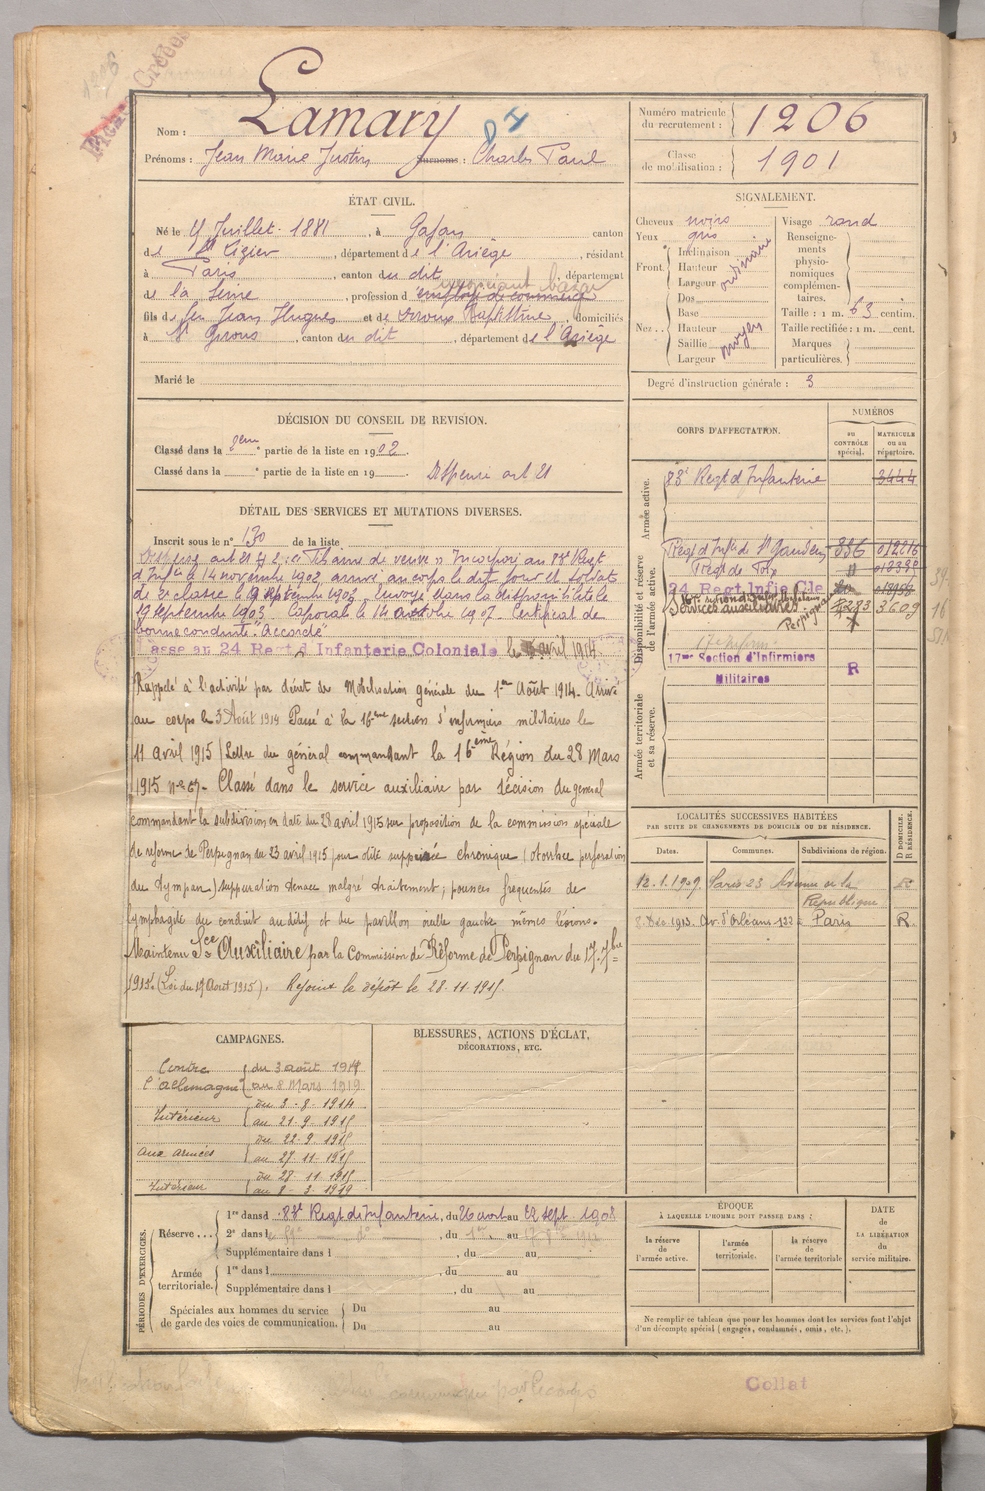 Nom : Lamary
84
Prénoms : Jean Marie Justin Surnoms : Charles Paul
Numéro matricule du recrutement : 1206
Classe de mobilisation : 1901
ÉTAT CIVIL.
Né le 4 Juillet 1881, à Gajan canton
de St Lizier, département de l'Ariège, résidant
à Paris, canton du dit, département
négociant bazar
de la Seine, profession d'employé de commerce
fils de feu Jean Hugues et de Baptistine, domiciliés
à St Girons, canton du dit, département de l'Ariège
Marié le
SIGNALEMENT.
Cheveux noirs
Yeux gris
Front. Inclinaison
Hauteur ordinaire
Largeur
Nez. Dos
Base
Hauteur moyen
Saillie
Largeur
Visage rond
Renseignements physionomiques complémentaires.
Taille : 1 m. 63 centim.
Taille rectifiée : 1 m. cent.
Marques particulières.
Degré d'instruction générale : 3
DÉCISION DU CONSEIL DE REVISION.
Classé dans la 2em partie de la liste en 1902.
Classé dans la e partie de la liste en 19 Dispensé art 21
DÉTAIL DES SERVICES ET MUTATIONS DIVERSES.
Inscrit sous le n° 130 de la liste
Dispensé art 21 § 2 : " fils aîné de veuve " Incorporé au 83e Régt
d'Infie le 14 novembre 1902, arrivé au corps le dit jour et soldat
de 2e classe le 19 septembre 1903. Envoyé dans la disponibilité le
19 septembre 1903. Caporal le 14 octobre 1907. Certificat de
bonne conduite "Accordé"
Passe au 24 Regt d'Infanterie Coloniale le avril 1914.
Rappelé à l'activité par décret de Mobilisation générale du 1er Août 1914. Arrivé
au corps le 3 Août 1914 Passé à la 16ème section d'infirmiers militaires le
11 avril 1915 (Lettre du général commandant la 16ème Région du 28 Mars
1915 n° 67. Classé dans le service auxiliaire par décision du général
commandant la subdivision en date du 28 avril 1915 sur proposition de la commission spéciale
de réforme de Perpignan du 23 avril 1915 pour otite suppurée chronique (otorrhée perforation
du tympan) suppuration tenace malgré traitement ; poussées fréquentes de
lymphagite du conduit auditif et du pavillon oreille gauche mêmes lésions.
Maintenu Sce Auxiliaire par la Commission de Réforme de Perpignan du 17 7bre
1915 (Loi du 17 Août 1915). Rejoint le dépôt le 28.11.1915.
CORPS D'AFFECTATION.
NUMÉROS
au CONTRÔLE spécial.
MATRICULE ou au répertoire.
Armée active.
83e Regt d'Infanterie 3444
Disponibilité et réserve de l'armée active.
Régt d'Infie de St Gaudens 336
Régt de Foix "
24 Regt Infie Cle
Services auxiliaires. Perpignan 3609
17me Section d'Infirmiers
Militaires R
Armée territoriale et sa réserve.
LOCALITÉS SUCCESSIVES HABITÉES
PAR SUITE DE CHANGEMENTS DE DOMICILE OU DE RÉSIDENCE.
Dates. Communes. Subdivisions de région. D DOMICILE. R RÉSIDENCE.
12.1.1909. Paris 23 Avenue de la République R
8 Déc. 1913. Av. d'Orléans 122 Paris R.
CAMPAGNES.
Contre l'Allemagne du 3 août 1914
au 8 Mars 1919
Intérieur du 3-8-1914
au 21.9.1915
aux armées du 22.9.1915
au 27.11.1915
Intérieur du 28.11.1915
au 8-3-1919
BLESSURES, ACTIONS D'ÉCLAT,
DÉCORATIONS, ETC.
PÉRIODES D'EXERCICES.
Réserve... 1re dans l 83e Regt d'Infanterie, du 26 août au 22 sept 1908
2e dans l, du au
Supplémentaire dans l, du au
Armée territoriale. 1re dans l, du au
Supplémentaire dans l, du au
Spéciales aux hommes du service de garde des voies de communication. Du au
Du au
ÉPOQUE
À LAQUELLE L'HOMME DOIT PASSER DANS :
la réserve de l'armée active.
l'armée territoriale.
la réserve de l'armée territoriale
DATE DE LA LIBÉRATION du service militaire.
Ne remplir ce tableau que pour les hommes dont les services font l'objet
d'un décompte spécial (engagés, condamnés, omis, etc.).
Collat